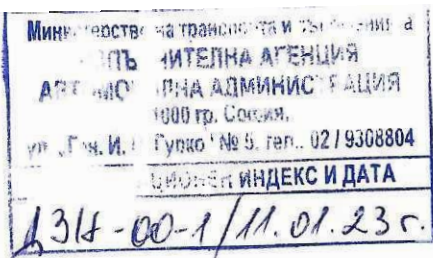 Министерство на транспорта и съобщенията
ИЗПЪЛНИТЕЛНА АГЕНЦИЯ
АВТОМОБИЛНА АДМИНИСТРАЦИЯ
1000 гр. София,
ул. „Ген. И. Гурко" № 5, тел.: 02 / 9308804
ИНДЕКС И ДАТА
-00-1/11.01.23 г.